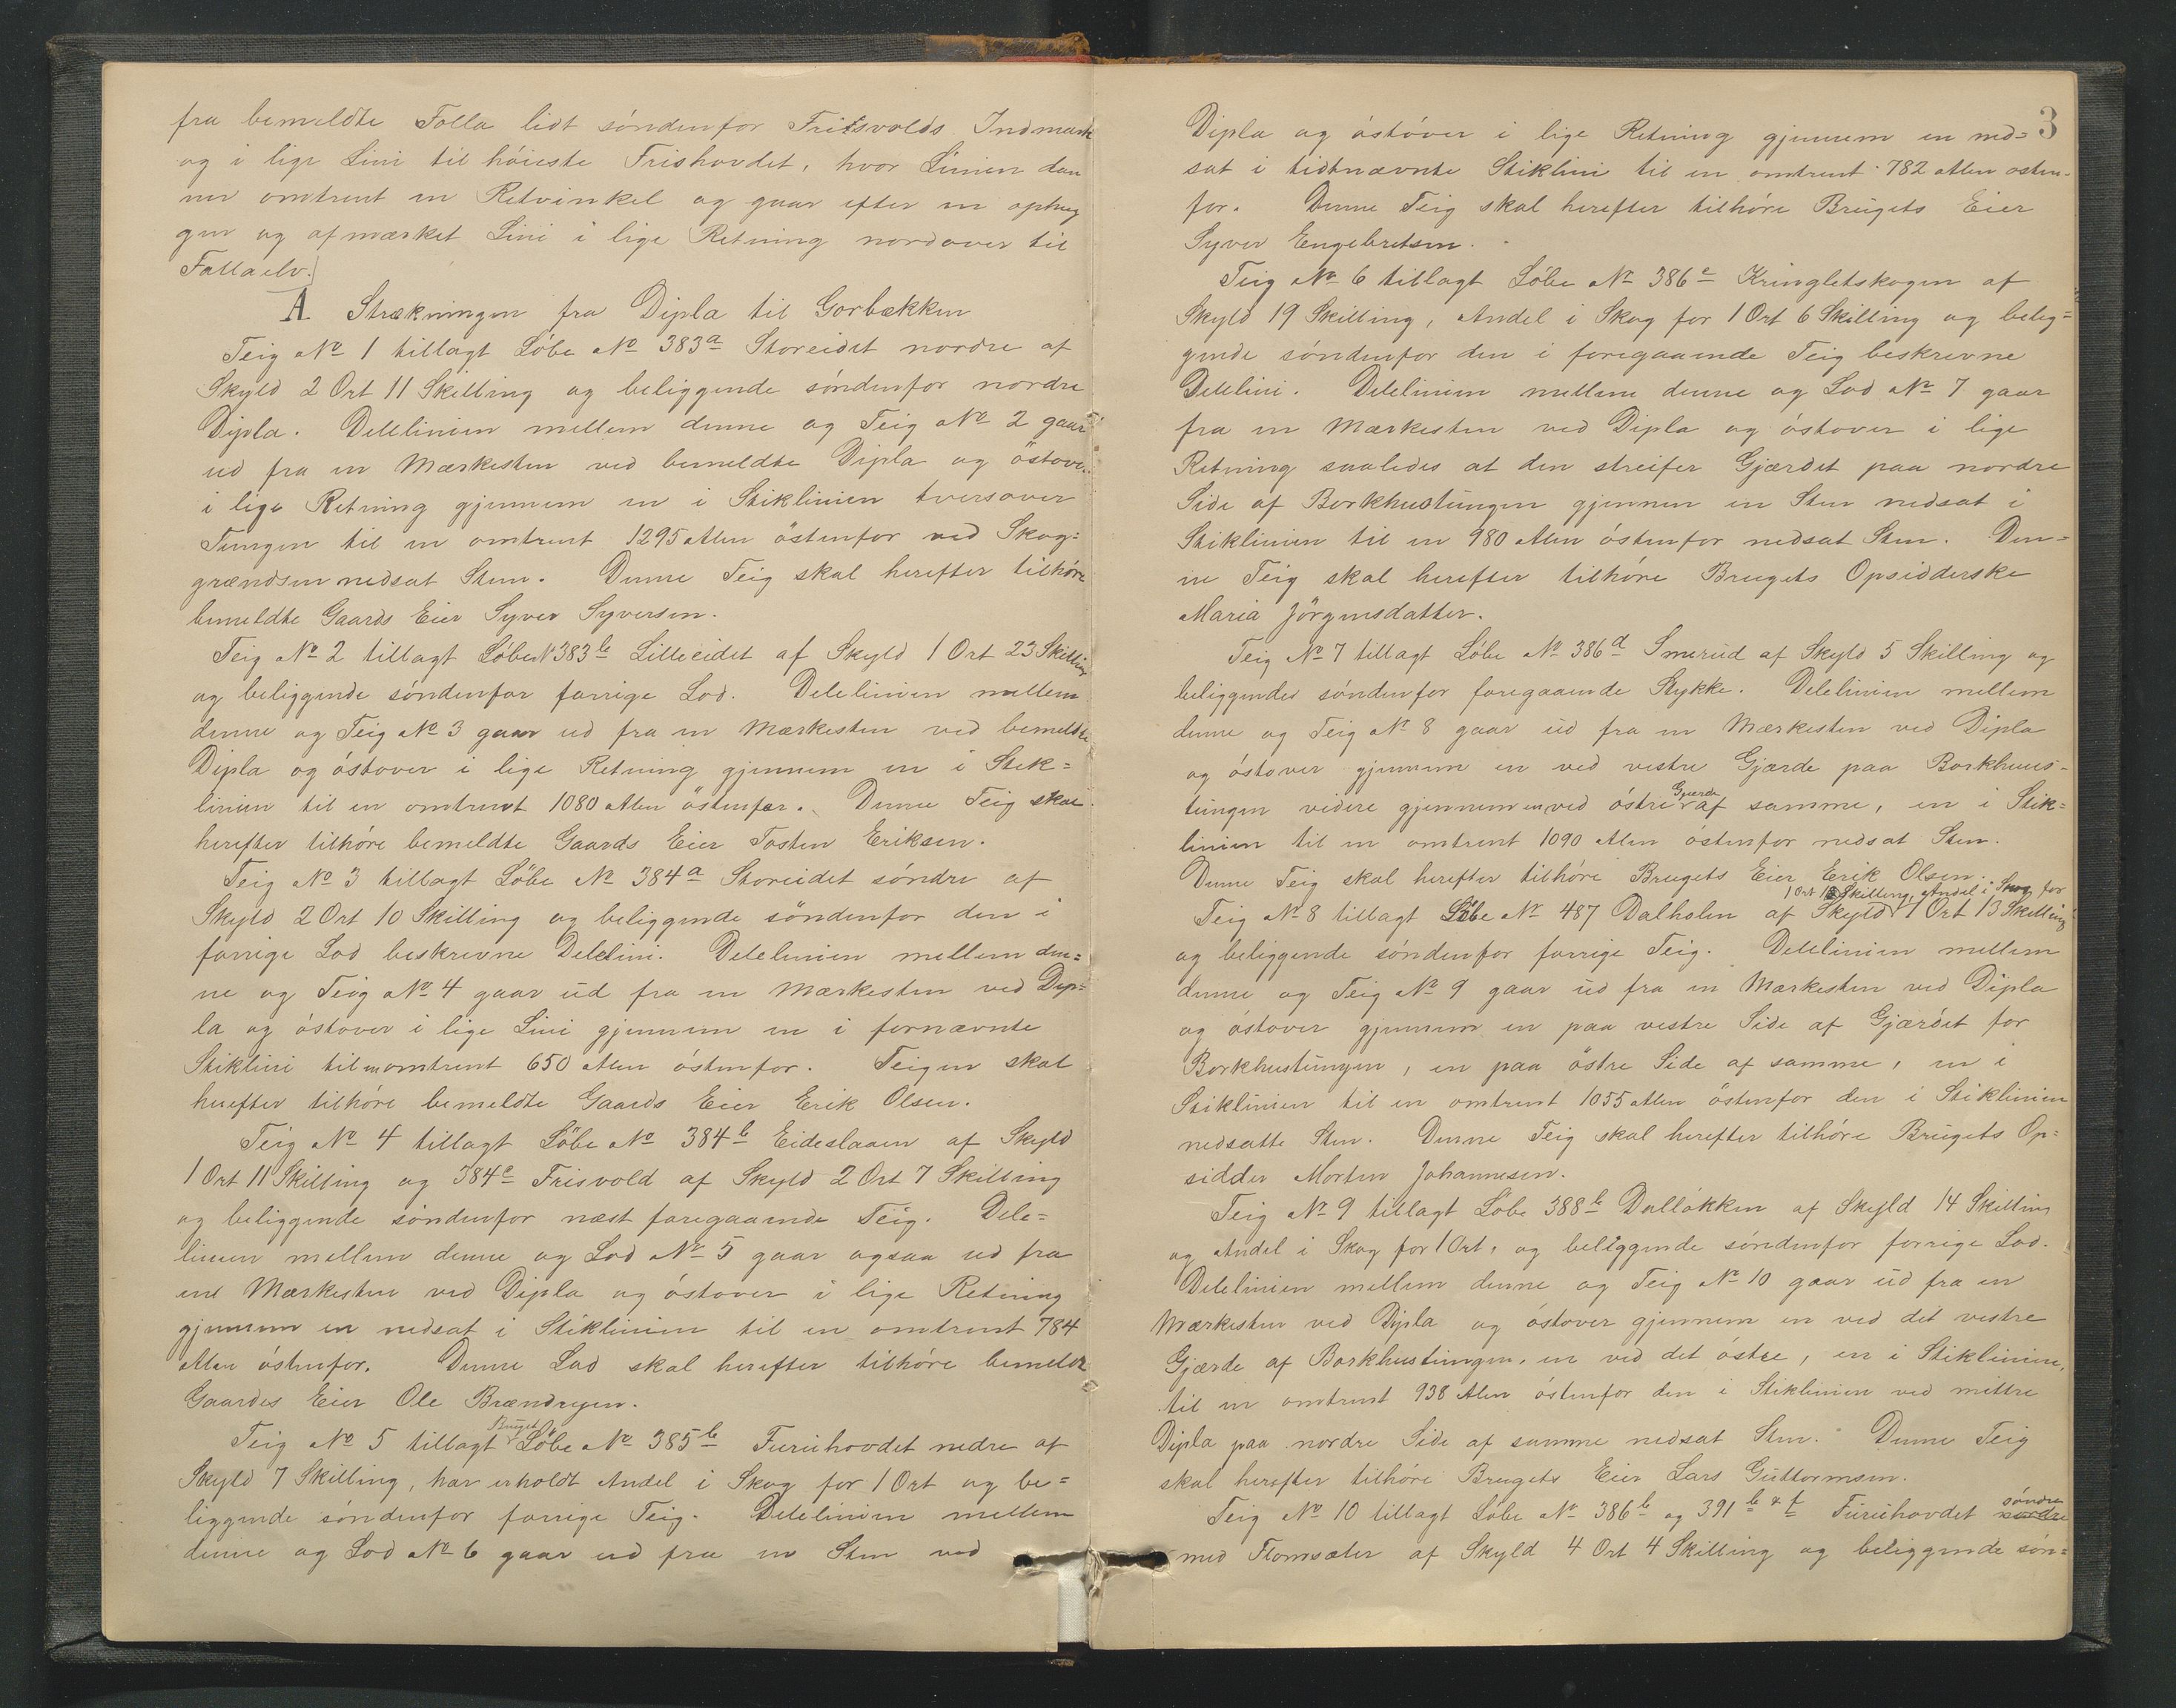 fra bemeldte Folla lidt söndenfor Fritsvolds Indmark
og i lige Lini til höieste Frishovdet, hvor Linien dan
ner omtrent en Retvinkel og gaar efter en ophug
gen og afmærket Lini i lige Retning nordover til
Follaelv.
A Strækningen fra Dipla til Gorbækken
Teig No 1 tillagt Löbe No 383a Storeidet nordre af
Skyld 2 Ort 11 Skilling og beliggende söndenfor nordre
Dipla. Delelinien mellem denne og Teig No 2 gaar
ud fra en Mærkesten ved bemeldte Dipla og östover
i lige Retning gjennem en i Stiklinien tversover
Tungen til en omtrent 1295 Alen östenfor ved Skog=
grændsen nedsat Sten. Denne Teig skal herefter tilhöre
bemeldte Gaards Eier Syver Syversen.
Teig No 2 tillagt Löbe N 383b Lilleeidet af Skyld 1 Ort 23 Skilling
og beliggende söndenfor forrige Lod. Delelinien mellem
denne og Teig No 3 gaar ud fra en Mærkesten ved bemeldte
Dipla og östover i lige Retning gjennem en i Stik=
linien til en omtrent 1080 Alen östenfor. Denne Teig skal
herefter tilhöre bemeldte Gaards Eier Tosten Eriksen.
Teig No 3 tillagt Löbe No 384a Storeidet söndre af
Skyld 2 Ort 10 Skilling og beliggende söndenfor den i
forrige Lod beskrevne Delelini. Delelinien mellem den=
ne og Teig No 4 gaar ud fra en Mærkesten ved Dip=
la og östover i lige Lini gjennem en i fornævnte
Stiklini til en omtrent 650 Alen östenfor. Teigen skal
herefter tilhöre bemeldte Gaards Eier Erik Olsen.
Teig No 4 tillagt Löbe No 384b Eideslaaen af Skyld
1 Ort 11 Skilling og 384c Frisvold af Skyld 2 Ort 7 Skilling
og beliggende söndenfor næst foregaaende Teig. Dele=
linien mellem denne og Lod No 5 gaar ogsaa ud fra
en Mærkesten ved Dipla og östover i lige Retning
gjennem en nedsat i Stiklinien til en omtrent 784
Alen östenfor. Denne Lod skal herefter tilhöre bemeldte
Gaardes Eier Ole Brændryen.
Teig No 5 tillagt Bruget Löbe No 385b Furuhovdet nedre af
Skyld 7 Skilling, har erholdt Andel i Skog for 1 Ort og be=
liggende söndenfor forrige Teig. Delelinien mellem
denne og Lod No 6 gaar ud fra en Sten ved
3
Dipla og östover i lige Retning gjennem en ned=
sat i tidtnævnte Stiklini til en omtrent 782 Alen osten-
for. Denne Teig skal herefter tilhöre Brugets Eier
Syver Engebretsen.
Teig No 6 tillagt Löbe No 386c Kringletskogen af
Skyld 19 Skilling, Andel i Skog for 1 Ort 6 Skilling og belig=
gende söndenfor den i foregaaende Teig beskrevne
Delelini. Delelinien mellem denne og Lod No 7 gaar
fra en Mærkesten ved Dipla og östover i lige
Retning saaledes at den streifer Gjærdet paa nordre
Side af Borkhustungen gjennem en Sten nedsat i
Stiklinien til en 980 Alen östenfor nedsat Sten. Den=
ne Teig skal herefter tilhöre Brugets Opsidderske
Maria Jörgensdatter.
Teig No 7 tillagt Löbe No 386d Smerud af Skyld 5 Skilling og
beliggendes söndenfor foregaaende Stykke. Delelinien mellem
denne og Teig No 8 gaar ud fra en Mærkesten ved Dipla
og östover gjennem en ved vestre Gjærde paa Borkhuus-
tungen videre gjennem en ved östre Gjærde af samme, en i Stik=
linien til en omtrent 1090 Alen östenfor nedsat Sten.
Denne Teig skal herefter tilhöre Brugets Eier Erik Olsen.
Teig No 8 tillagt Löbe No 487 Dalholen af Skyld 1 Ort 13 Skilling, Andel i Skog for 1 Ort 13 Skilling
og beliggende söndenfor forrige Teig. Delelinien mellem
denne og Teig No 9 gaar ud fra en Mærkesten ved Dipla
og östover gjennem en paa vestre Side af Gjærdet for
Borkhustungen, en paa östre Side af samme, en i
Stiklinien til en omtrent 1055 Alen östenfor den i Stiklinien
nedsatte Sten. Denne Teig skal herefter tilhöre Brugets Op=
sidder Morten Johannesen.
Teig No 9 tillagt Löbe 388b Dallökken af Skyld 14 Skilling
og Andel i Skog for 1 Ort, og beliggende söndenfor forrige Lod.
Delelinien mellem denne og Teig No 10 gaar ud fra en
Mærkesten ved Dipla og östover gjennem en ved det vestre
Gjærde af Borkhustungen, en ved det östre, en i Stiklinien,
til en omtrent 938 Alen östenfor den i Stiklinien ved mittre
Dipla paa nordre Side af samme nedsat Sten. Denne Teig
skal herefter tilhöre Brugets Eier Lars Guttormsen.
Teig No 10 tillagt Löbe No 386b og 391b & f Furuhovdet söndre nordre
med Flomsæter af Skyld 4 Ort 4 Skilling og beliggende sön=